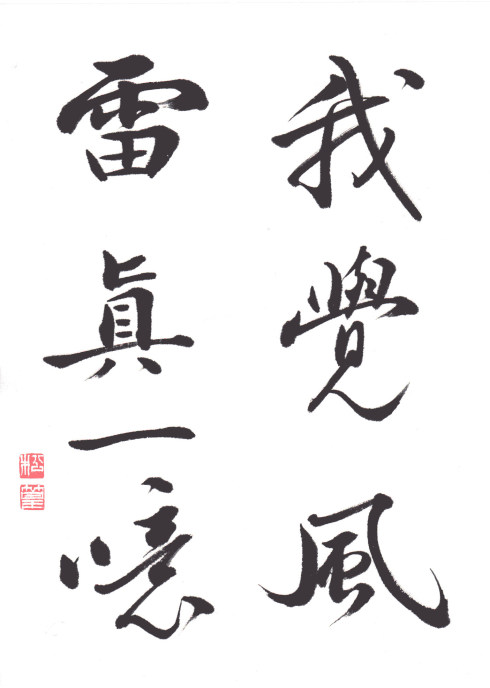 我覺風
雷眞一噫